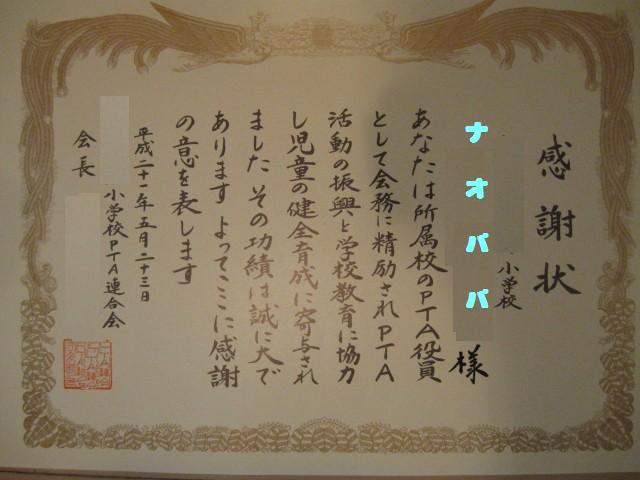 感謝状
小学校
ナオパパ 様
あなたは所属校のPTA役員
として会務に精励されPTA
活動の振興と学校教育に協力
し児童の健全育成に寄与され
ました その功績は誠に大で
あります よってここに感謝
の意を表します
平成二十一年五月二十三日
小学校PTA連合会
会長